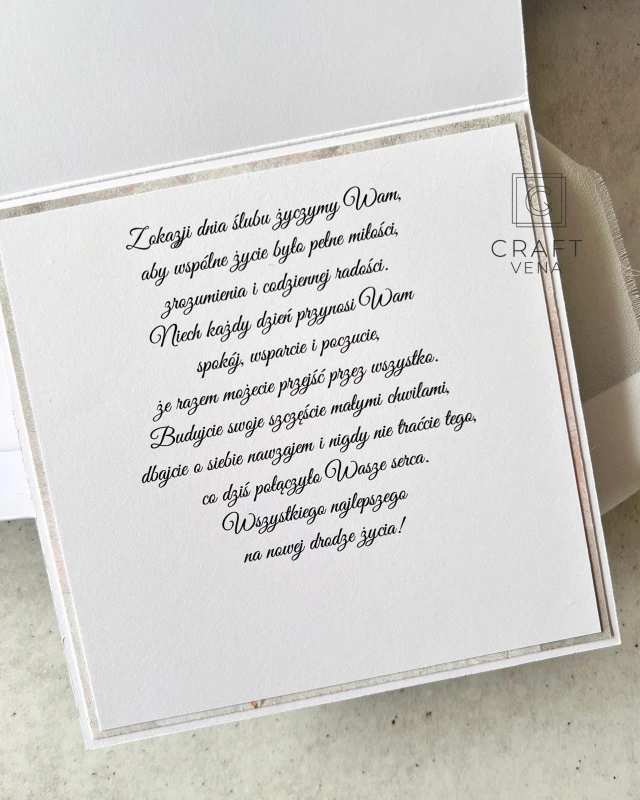 Z okazji dnia ślubu życzymy Wam,
aby wspólne życie było pełne miłości,
zrozumienia i codziennej radości.
Niech każdy dzień przynosi Wam
spokój, wsparcie i poczucie,
że razem możecie przejść przez wszystko.
Budujcie swoje szczęście małymi chwilami,
dbajcie o siebie nawzajem i nigdy nie traćcie tego,
co dziś połączyło Wasze serca.
Wszystkiego najlepszego
na nowej drodze życia!
C
CRAFT
VENA